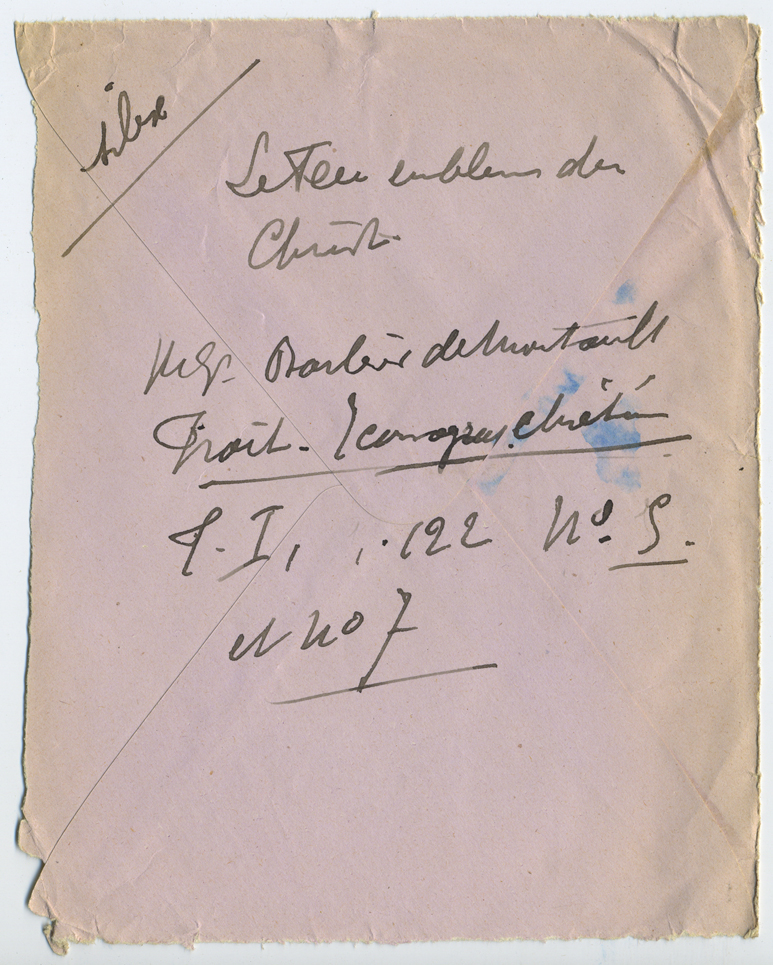 silex
Le Feu emblème du
Christ
Mgr Barbier de Montault
Trait. Iconograp. chrétien
T. I, p. 122 No. 5.
et No 7